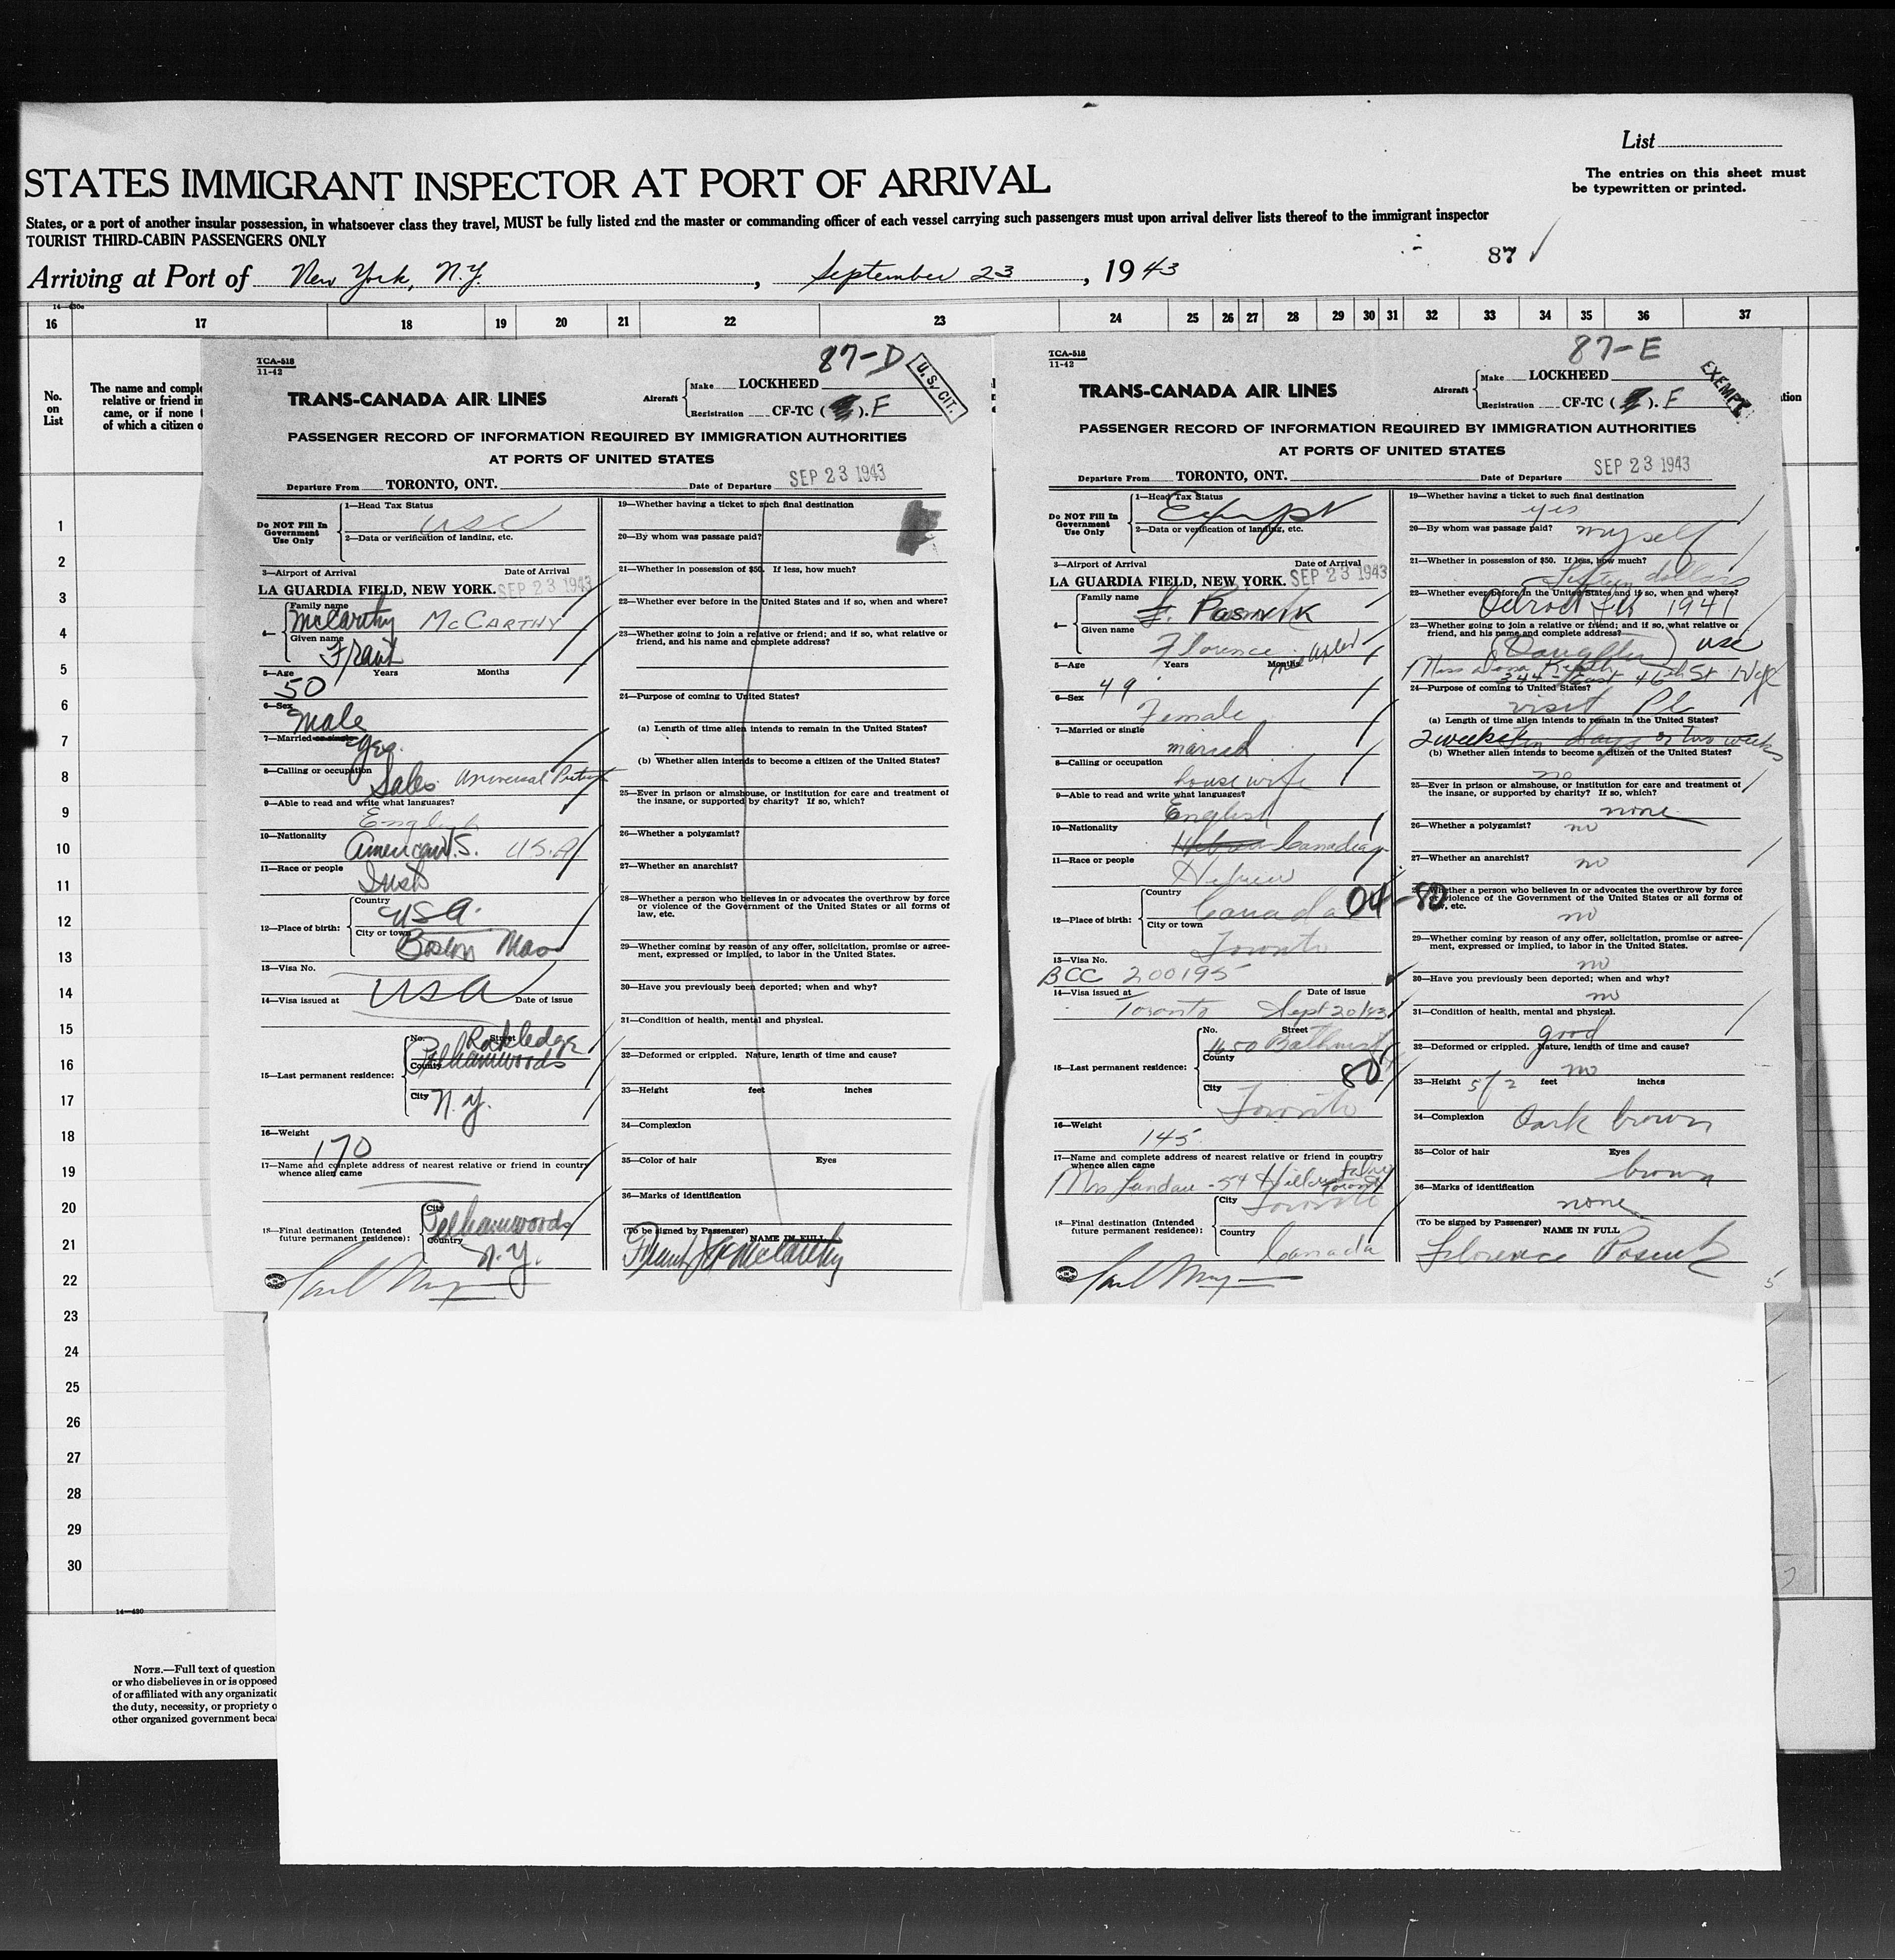 List
STATES IMMIGRANT INSPECTOR AT PORT OF ARRIVAL
The entries on this sheet must
be typewritten or printed.
States, or a port of another insular possession, in whatsoever class they travel, MUST be fully listed and the master or commanding officer of each vessel carrying such passengers must upon arrival deliver lists thereof to the immigrant inspector
TOURIST THIRD-CABIN PASSENGERS ONLY
87
Arriving at Port of New York, N.Y. , September 23 , 1943
16 17 18 19 20 21 22 23 24 25 26 27 28 29 30 31 32 33 34 35 36 37
No.
on
List
The name and comple
relative or friend in
came, or if none t
of which a citizen o
1
2
3
4
5
6
7
8
9
10
11
12
13
14
15
16
17
18
19
20
21
22
23
24
25
26
27
28
29
30
14—430
NOTE.—Full text of question
or who disbelieves in or is opposed
of or affiliated with any organizatio
the duty, necessity, or propriety o
other organized government beca
TCA-518
11-42
87-D
U.S. CIT.
TRANS-CANADA AIR LINES
Aircraft Make LOCKHEED
Registration CF-TC ( ). F
PASSENGER RECORD OF INFORMATION REQUIRED BY IMMIGRATION AUTHORITIES
AT PORTS OF UNITED STATES
Departure From TORONTO, ONT. Date of Departure SEP 23 1943
Do NOT Fill In
Government
Use Only
1—Head Tax Status
USC
2—Data or verification of landing, etc.
3—Airport of Arrival Date of Arrival
LA GUARDIA FIELD, NEW YORK. SEP 23 1943
4— Family name
McCarthy McCARTHY
Given name
Frank
5—Age Years Months
50
6—Sex
Male
7—Married or single
yes.
8—Calling or occupation
Sales Universal Pictures
9—Able to read and write what languages?
English
10—Nationality
American U.S.A
11—Race or people
Irish
12—Place of birth: Country
USA.
City or town
Boston Mass
13—Visa No.
USA
14—Visa issued at Date of issue
15—Last permanent residence: No. Street
Rockledge
Pelhamwoods
County
City N.Y.
16—Weight
170
17—Name and complete address of nearest relative or friend in country
whence alien came
18—Final destination (Intended
future permanent residence): City
Pelhamwoods
Country
N.Y.
19—Whether having a ticket to such final destination
20—By whom was passage paid?
21—Whether in possession of $50. If less, how much?
22—Whether ever before in the United States and if so, when and where?
23—Whether going to join a relative or friend; and if so, what relative or
friend, and his name and complete address?
24—Purpose of coming to United States?
(a) Length of time alien intends to remain in the United States?
(b) Whether alien intends to become a citizen of the United States?
25—Ever in prison or almshouse, or institution for care and treatment of
the insane, or supported by charity? If so, which?
26—Whether a polygamist?
27—Whether an anarchist?
28—Whether a person who believes in or advocates the overthrow by force
or violence of the Government of the United States or all forms of
law, etc.
29—Whether coming by reason of any offer, solicitation, promise or agree-
ment, expressed or implied, to labor in the United States.
30—Have you previously been deported; when and why?
31—Condition of health, mental and physical.
32—Deformed or crippled. Nature, length of time and cause?
33—Height feet inches
34—Complexion
35—Color of hair Eyes
36—Marks of identification
(To be signed by Passenger) NAME IN FULL
Frank McCarthy
TCA-518
11-42
87-E
EXEMPT
TRANS-CANADA AIR LINES
Aircraft Make LOCKHEED
Registration CF-TC ( ). F
PASSENGER RECORD OF INFORMATION REQUIRED BY IMMIGRATION AUTHORITIES
AT PORTS OF UNITED STATES
Departure From TORONTO, ONT. Date of Departure SEP 23 1943
Do NOT Fill In
Government
Use Only
1—Head Tax Status
Exempt
2—Data or verification of landing, etc.
3—Airport of Arrival Date of Arrival
LA GUARDIA FIELD, NEW YORK. SEP 23 1943
4— Family name
F. Pasnik
Given name
Florence
5—Age Years Months
49
6—Sex
Female
7—Married or single
married
8—Calling or occupation
housewife
9—Able to read and write what languages?
English
10—Nationality
Hebrew Canadian
11—Race or people
Hebrew
12—Place of birth: Country
Canada 04-80
City or town
Toronto
13—Visa No.
BCC 200195
14—Visa issued at Date of issue
Toronto Sept 20/43
15—Last permanent residence: No. Street
1650 Bathurst
County
80
City
Toronto
16—Weight
145
17—Name and complete address of nearest relative or friend in country
whence alien came
Mrs Landau - 54 Toronto
18—Final destination (Intended
future permanent residence): City
Toronto
Country
Canada
19—Whether having a ticket to such final destination
yes
20—By whom was passage paid? myself
21—Whether in possession of $50. If less, how much?
fifteen dollars
22—Whether ever before in the United States and if so, when and where?
Detroit Feb 1941
23—Whether going to join a relative or friend; and if so, what relative or
friend, and his name and complete address?
(Daughter) USC
Miss Dona
344 - East 46th St NYC
24—Purpose of coming to United States?
visit
(a) Length of time alien intends to remain in the United States?
2 weeks ten days or two weeks
(b) Whether alien intends to become a citizen of the United States?
no
25—Ever in prison or almshouse, or institution for care and treatment of
the insane, or supported by charity? If so, which?
none
26—Whether a polygamist? no
27—Whether an anarchist? no
Whether a person who believes in or advocates the overthrow by force
violence of the Government of the United States or all forms of
etc.
no
29—Whether coming by reason of any offer, solicitation, promise or agree-
ment, expressed or implied, to labor in the United States.
no
30—Have you previously been deported; when and why?
no
31—Condition of health, mental and physical.
good
32—Deformed or crippled. Nature, length of time and cause?
no
33—Height 5/2 feet inches
34—Complexion Dark brown
35—Color of hair Eyes
brown
36—Marks of identification
none
(To be signed by Passenger) NAME IN FULL
Florence Pasnik